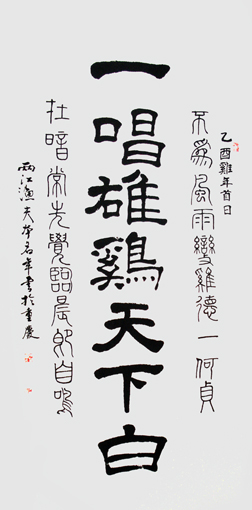 乙酉雞年首日
不為風雨變雞德一何貞
一唱雄鷄天下白
在暗常先覺臨晨即自鳴
兩江漁夫名年書於重慶